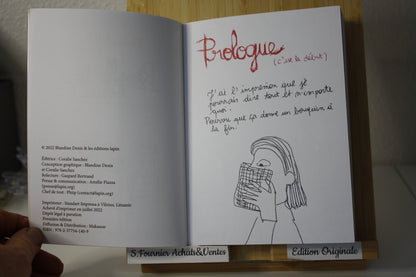 © 2022 Blandine Denis & les éditions lapin
Éditrice : Coralie Sanchez
Conception graphique : Blandine Denis
et Coralie Sanchez
Relecture : Gaspard Bertrand
Presse & communication : Amélie Planta
(presse@lapin.org)
Chef de tout : Phiip (contact@lapin.org)
Imprimeur : Standart Impressa à Vilnius, Lituanie
Achevé d'imprimer en juillet 2022
Dépôt légal à parution
Première édition
Diffusion & Distribution : Makassar
ISBN : 978-2-37754-140-9
Prologue
(c'est le début)
J'ai l'impression que je
pourrais dire tout et n'importe
quoi.
Pourvu que ça donne un bouquin à
la fin.
S. Fournier Achats&Ventes
Edition Originale